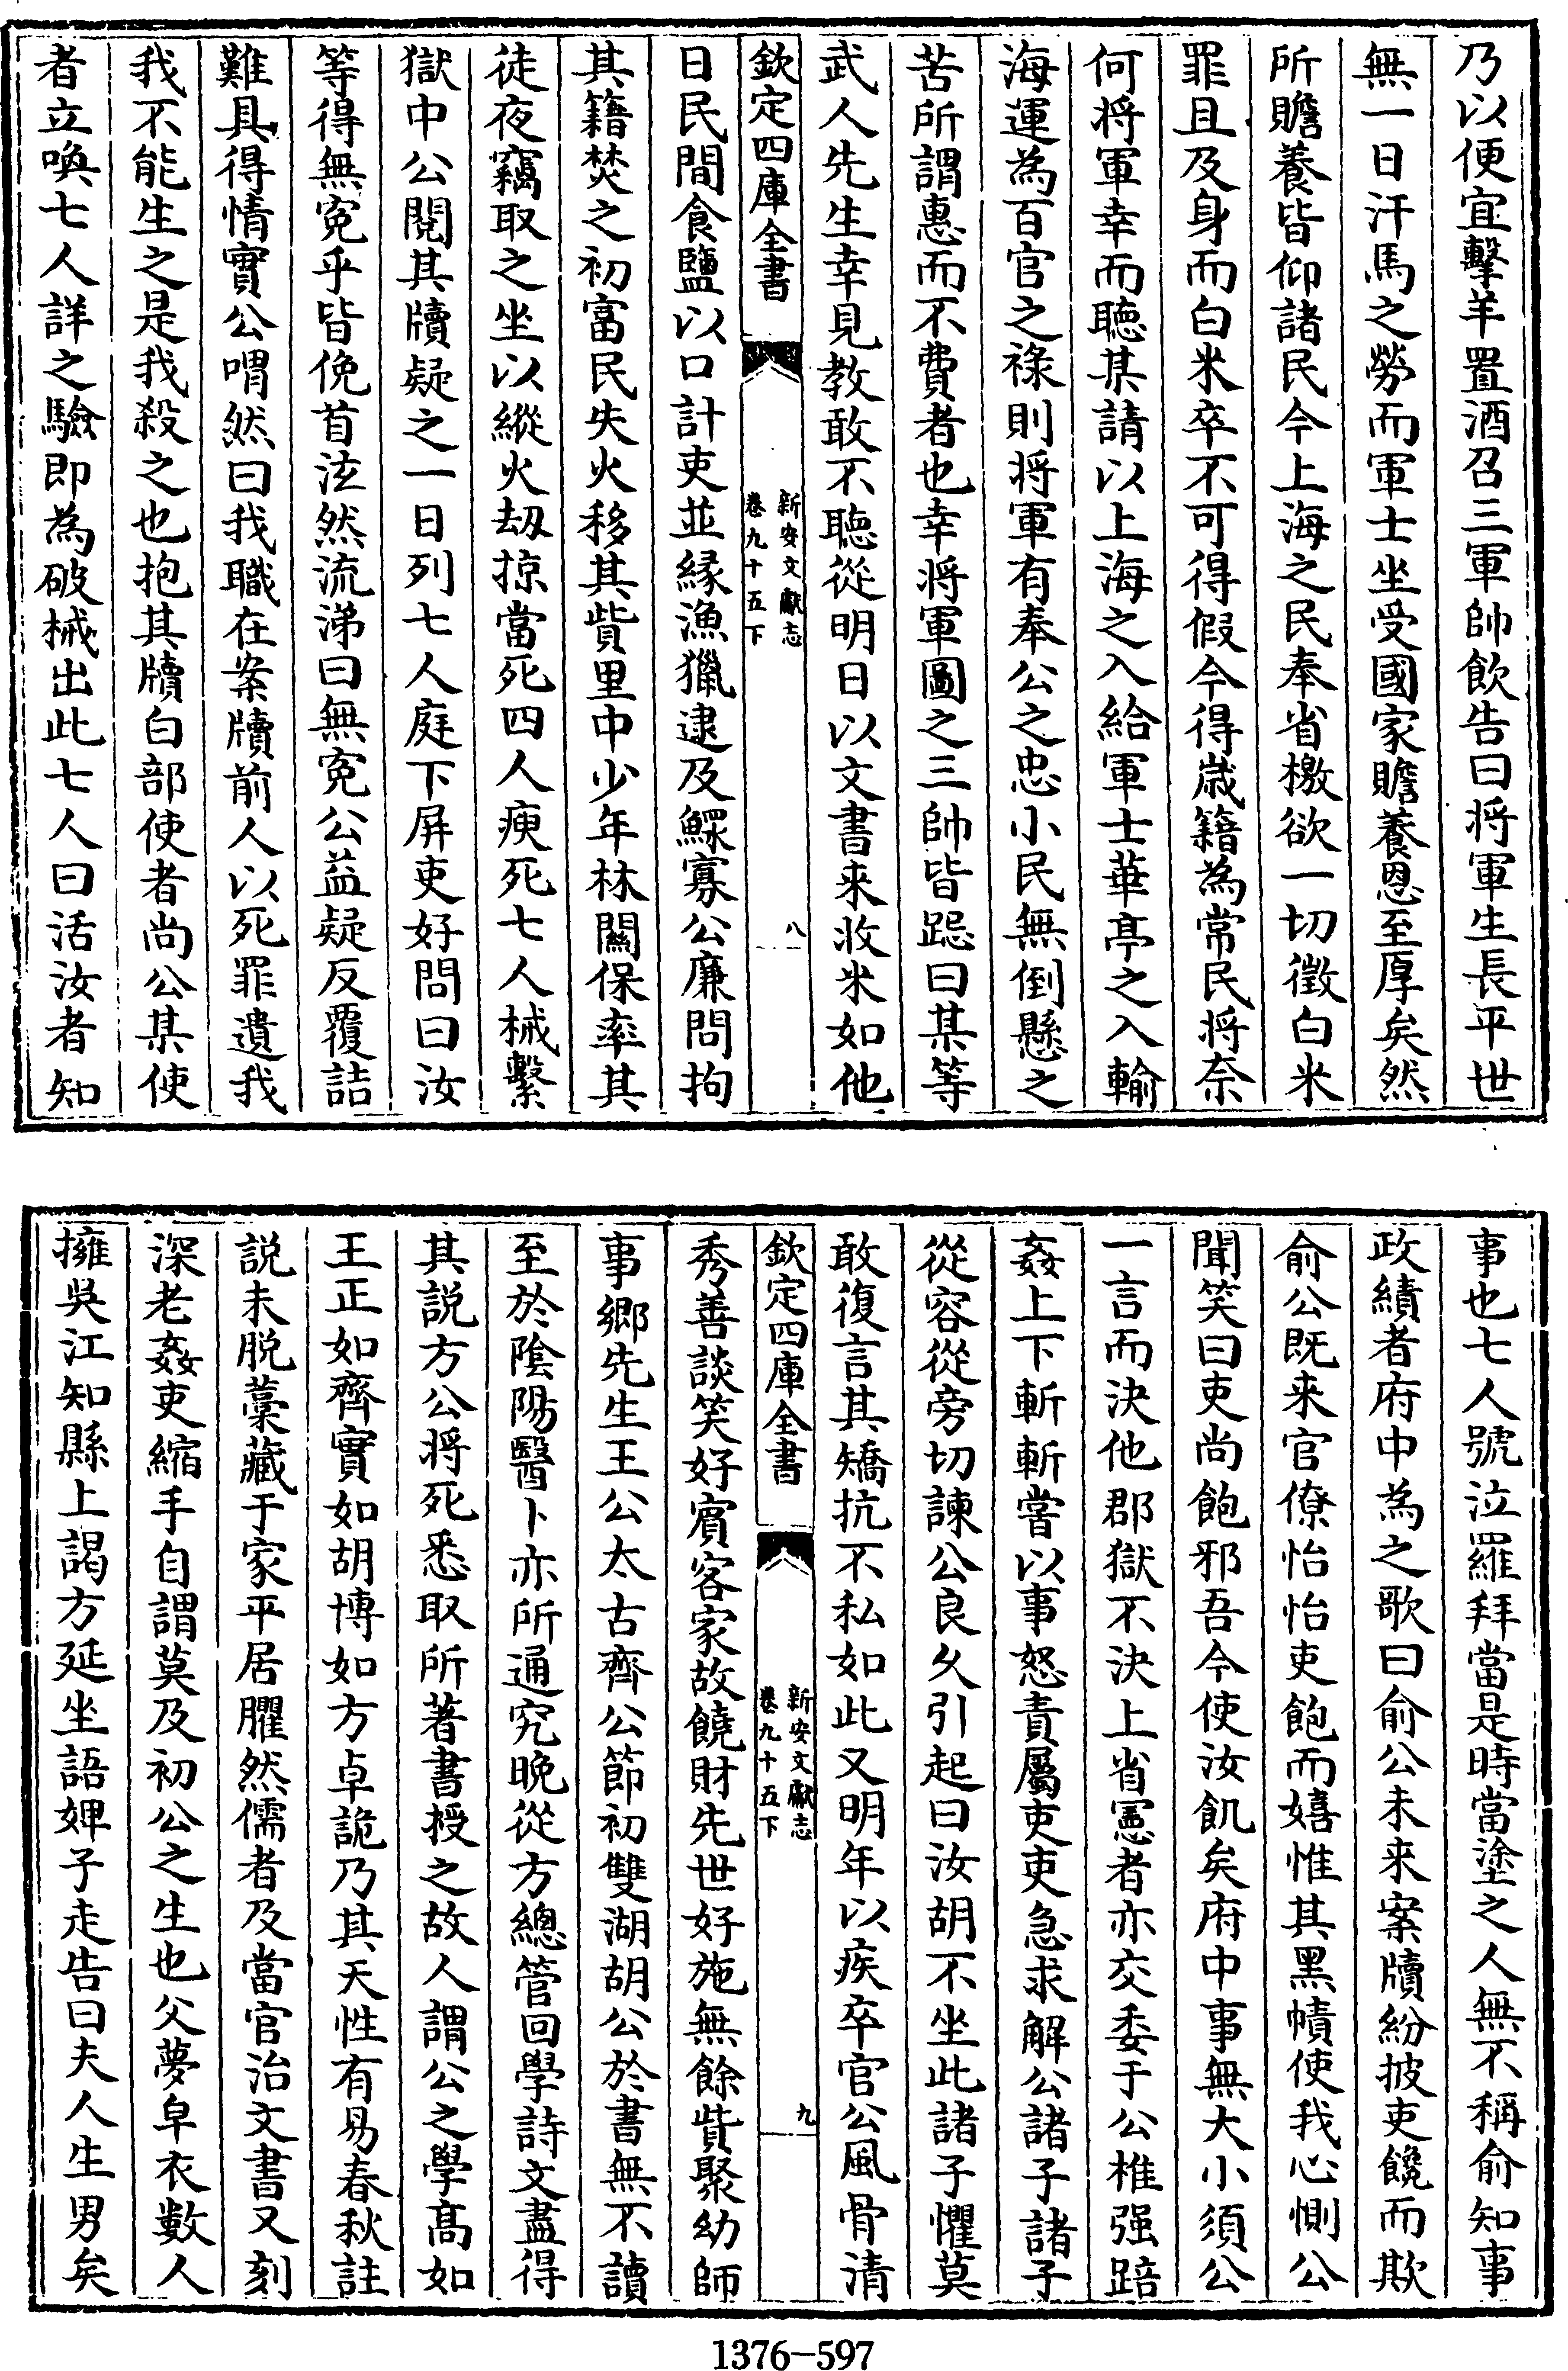 乃以便宜擊羊置酒召三軍帥飲告曰将軍生長平世
無一日汗馬之勞而軍士坐受國家贍養恩至厚矣然
所贍養皆仰諸民今上海之民奉省檄欲一切徵白米
罪且及身而白米卒不可得假今得嵗籍為常民将奈
何将軍幸而聴某請以上海之入給軍士華亭之入輸
海運為百官之禄則将軍有奉公之忠小民無倒懸之
苦所謂惠而不費者也幸将軍圖之三帥皆跽曰某等
武人先生幸見教敢不聴從明日以文書来收米如他
欽定四庫全書
新安文獻志
卷九十五下
八
日民間食鹽以口計吏並緣漁獵逮及鰥寡公廉問拘
其籍焚之初富民失火移其貲里中少年林關保率其
徒夜竊取之坐以縱火刼掠當死四人瘐死七人械繫
獄中公閱其牘疑之一日列七人庭下屏吏好問曰汝
等得無寃乎皆俛首泫然流涕曰無寃公益疑反覆詰
難具得情實公喟然曰我職在案牘前人以死罪遺我
我不能生之是我殺之也抱其牘白部使者尚公某使
者立喚七人詳之驗即為破械出此七人曰活汝者知
事也七人號泣羅拜當是時當塗之人無不稱俞知事
政績者府中為之歌曰俞公未来案牘紛披吏饞而欺
俞公既来官僚怡怡吏飽而嬉惟其黑幘使我心惻公
聞笑曰吏尚飽邪吾今使汝飢矣府中事無大小須公
一言而決他郡獄不決上省憲者亦交委于公椎强踣
姦上下斬斬嘗以事怒責屬吏吏急求解公諸子諸子
從容從旁切諫公良久引起曰汝胡不坐此諸子懼莫
敢復言其矯抗不私如此又明年以疾卒官公風骨清
欽定四庫全書
新安文獻志
卷九十五下
九
秀善談笑好賓客家故饒財先世好施無餘貲聚幼師
事鄉先生王公太古齊公節初雙湖胡公於書無不讀
至於隂陽醫卜亦所通究晩從方總管回學詩文盡得
其説方公将死悉取所著書授之故人謂公之學髙如
王正如齊實如胡博如方卓詭乃其天性有易春秋註
説未脱藁藏于家平居臞然儒者及當官治文書又刻
深老姦吏縮手自謂莫及初公之生也父夢皁衣數人
擁吳江知縣上謁方延坐語婢子走告曰夫人生男矣
1376-597